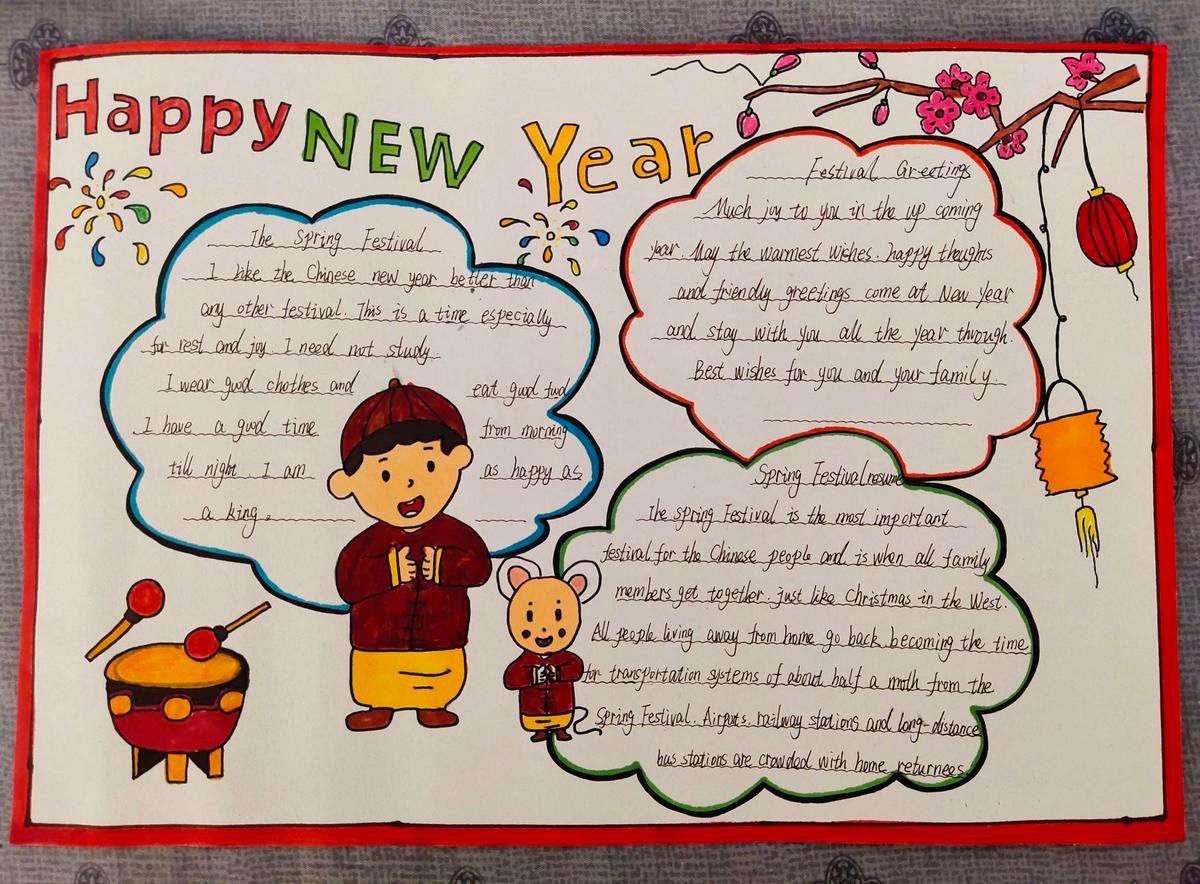 Happy NEW Year
The Spring Festival
I like the Chinese new year better than
any other festival. This is a time especially
for rest and joy I need not study.
I wear good chothes and eat good food
I have a good time from morning
till night. I am as happy as
a king.
Festival Greetings
Much joy to you in the up coming
year. May the warmest wishes. happy thoughts
and friendly greetings come at New Year
and stay with you all the year through.
Best wishes for you and your family.
Spring Festival resume
The spring Festival is the most important
festival for the Chinese people and is when all family
members get together. just like Christmas in the West.
All people living away from home go back. becoming the time
for transportation systems of about half a moth from the
Spring Festival. Airpots, railway stations and long-distance
bus stations are crowded with home returnees.